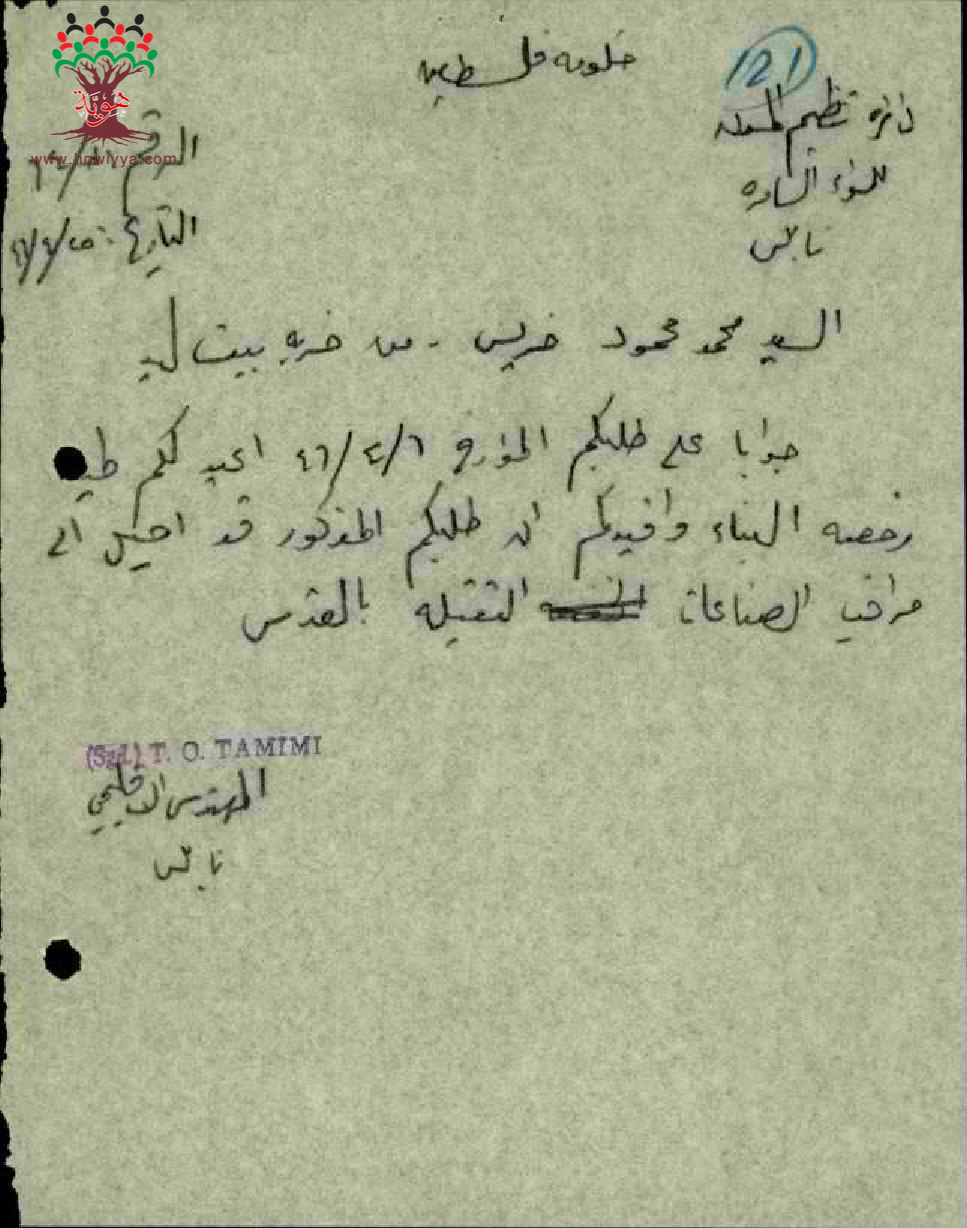 حكومة فلسطين
121
دائرة تنظيم المدن
للواء السامره
نابلس
الرقم
التاريخ:
هوية
www.howiyya.com
السيد محمد محمود خريس - من خربه بيت ليد
جوابا على طلبكم المؤرخ ٤٦/٤/٦ اعيد لكم طيه
رخصه البناء وافيدكم ان طلبكم المذكور قد احيل الى
مراقب الصناعات الثقيله بالقدس
(Sgd.) T. O. TAMIMI
المهندس الاقليمي
نابلس